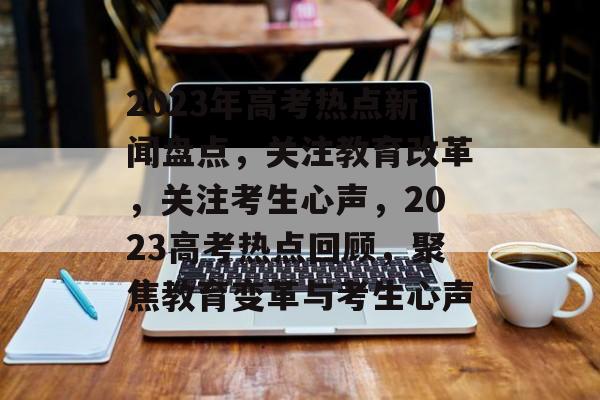 2023年高考热点新
闻盘点，关注教育改革
，关注考生心声，20
23高考热点回顾，聚
焦教育变革与考生心声